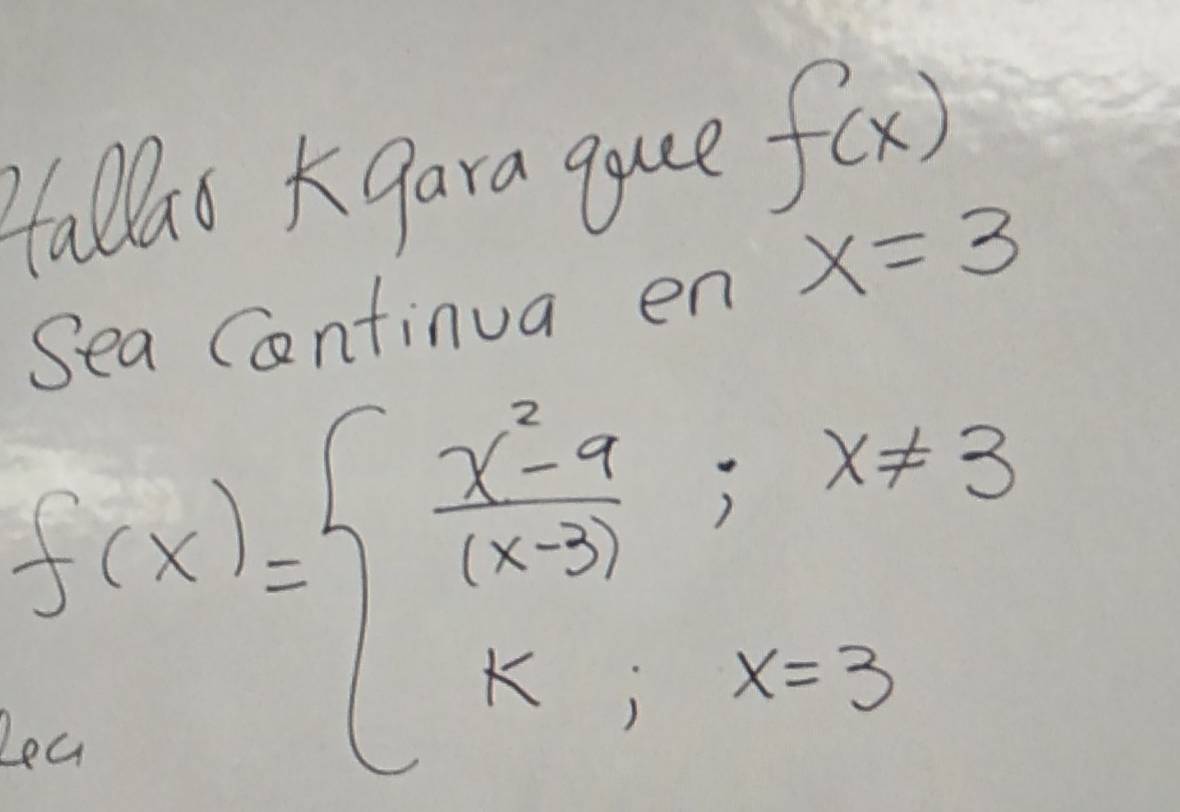 Hallar K para que f(x)
Sea Continua en x = 3
f(x) = { x² - 9 / (x - 3) ; x ≠ 3
K ; x = 3